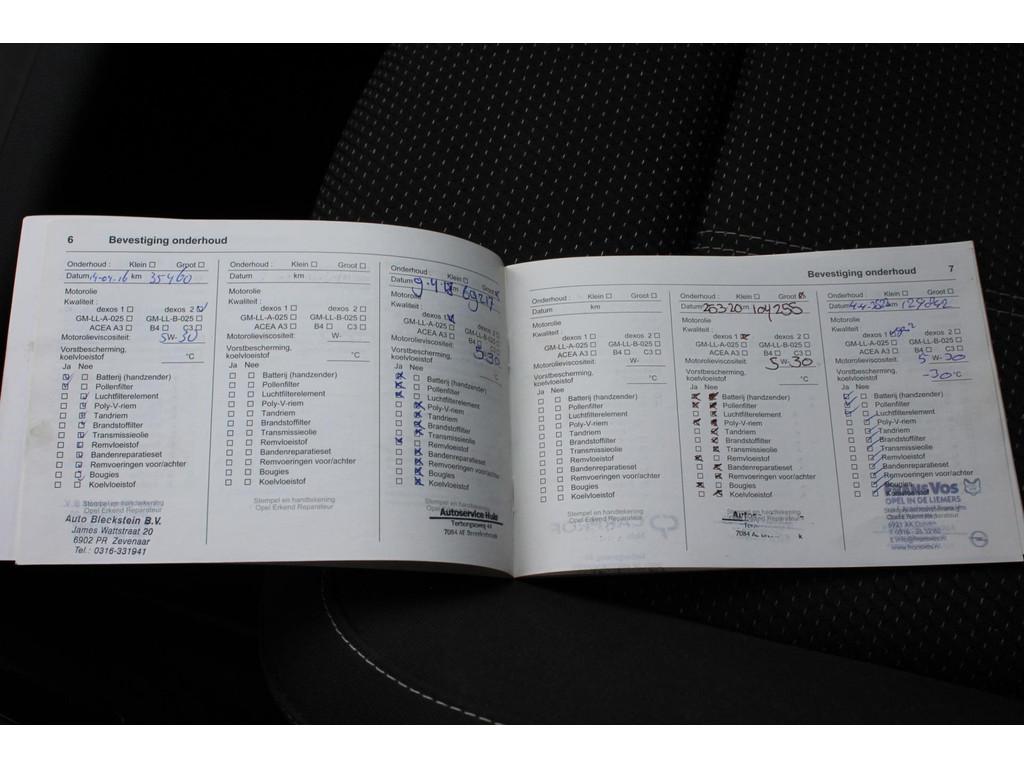 6 Bevestiging onderhoud
Onderhoud : Klein Groot
Datum 4-04-16 km 35460
Motorolie
Kwaliteit :
dexos 1 dexos 2
GM-LL-A-025 GM-LL-B-025
ACEA A3 B4 C3
Motorolieviscositeit: 5W-30
Vorstbescherming,
koelvloeistof °C
Ja Nee
Batterij (handzender)
Pollenfilter
Luchtfilterelement
Poly-V-riem
Tandriem
Brandstoffilter
Transmissieolie
Remvloeistof
Bandenreparatieset
Remvoeringen voor/achter
Bougies
Koelvloeistof
Stempel en handtekening
Opel Erkend Reparateur
Auto Bleckstein B.V.
James Wattstraat 20
6902 PR Zevenaar
Tel.: 0316-331941
Onderhoud : Klein Groot
Datum km
Motorolie
Kwaliteit :
dexos 1 dexos 2
GM-LL-A-025 GM-LL-B-025
ACEA A3 B4 C3
Motorolieviscositeit: W-
Vorstbescherming,
koelvloeistof °C
Ja Nee
Batterij (handzender)
Pollenfilter
Luchtfilterelement
Poly-V-riem
Tandriem
Brandstoffilter
Transmissieolie
Remvloeistof
Bandenreparatieset
Remvoeringen voor/achter
Bougies
Koelvloeistof
Stempel en handtekening
Opel Erkend Reparateur
Onderhoud : Klein Groot
Datum 9-4-18 69217
Motorolie
Kwaliteit :
dexos 1 dexos 2
GM-LL-A-025 GM-LL-B-025
ACEA A3 B4
Motorolieviscositeit: 5-30
Vorstbescherming,
koelvloeistof °C
Ja Nee
Batterij (handzender)
Pollenfilter
Luchtfilterelement
Poly-V-riem
Tandriem
Brandstoffilter
Transmissieolie
Remvloeistof
Bandenreparatieset
Remvoeringen voor/achter
Bougies
Koelvloeistof
Stempel en handtekening
Opel Erkend Reparateur
Autoservice
Terborgseweg
7084
Bevestiging onderhoud 7
Onderhoud : Klein Groot
Datum km
Motorolie
Kwaliteit :
dexos 1 dexos 2
GM-LL-A-025 GM-LL-B-025
ACEA A3 B4 C3
Motorolieviscositeit: W-
Vorstbescherming,
koelvloeistof °C
Ja Nee
Batterij (handzender)
Pollenfilter
Luchtfilterelement
Poly-V-riem
Tandriem
Brandstoffilter
Transmissieolie
Remvloeistof
Bandenreparatieset
Remvoeringen voor/achter
Bougies
Koelvloeistof
Stempel en handtekening
Opel Erkend Reparateur
Onderhoud : Klein Groot
Datum 26320 km 104255
Motorolie
Kwaliteit :
dexos 1 dexos 2
GM-LL-A-025 GM-LL-B-025
ACEA A3 B4 C3
Motorolieviscositeit: 5 W-30
Vorstbescherming,
koelvloeistof °C
Ja Nee
Batterij (handzender)
Pollenfilter
Luchtfilterelement
Poly-V-riem
Tandriem
Brandstoffilter
Transmissieolie
Remvloeistof
Bandenreparatieset
Remvoeringen voor/achter
Bougies
Koelvloeistof
Stempel en handtekening
Opel Erkend Reparateur
7084
Onderhoud : Klein Groot
Datum km
Motorolie
Kwaliteit :
dexos 1 dexos 2
GM-LL-A-025 GM-LL-B-025
ACEA A3 B4 C3
Motorolieviscositeit: 5 W-30
Vorstbescherming,
koelvloeistof -30 °C
Ja Nee
Batterij (handzender)
Pollenfilter
Luchtfilterelement
Poly-V-riem
Tandriem
Brandstoffilter
Transmissieolie
Remvloeistof
Bandenreparatieset
Remvoeringen voor/achter
Bougies
Koelvloeistof
FRANS VOS
OPEL IN DE LIEMERS
6921 RK Duiven